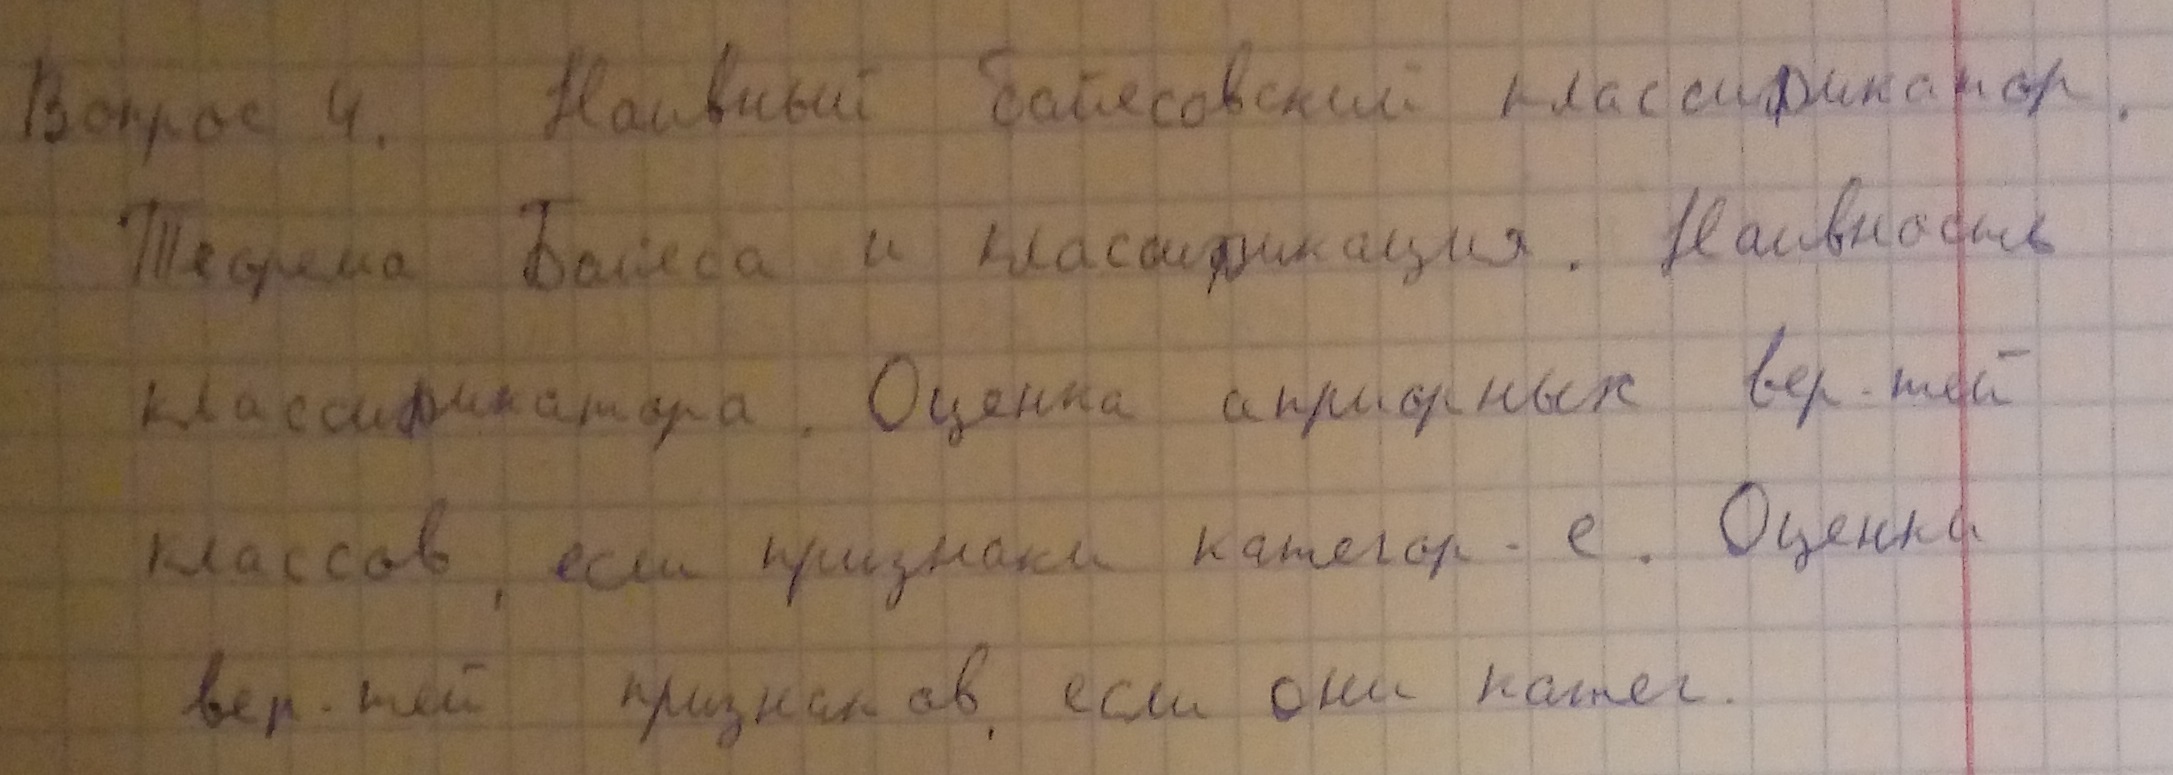 Вопрос 4. Наивный байесовский классификатор.
Теорема Байеса и классификация. Наивность
классификатора. Оценка априорных вер-тей
классов, если признаки категор-е. Оценка
вер-тей признаков, если они катег.